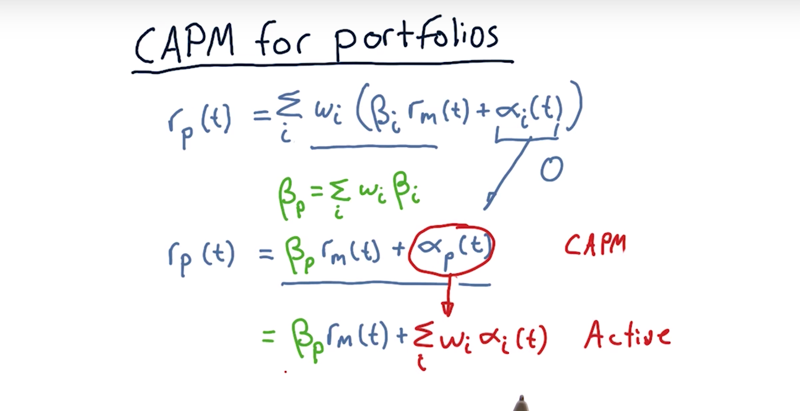 CAPM for portfolios
r_p(t) = Σ_i w_i (β_i r_m(t) + α_i(t))
0
β_p = Σ_i w_i β_i
r_p(t) = β_p r_m(t) + α_p(t) CAPM
= β_p r_m(t) + Σ_i w_i α_i(t) Active